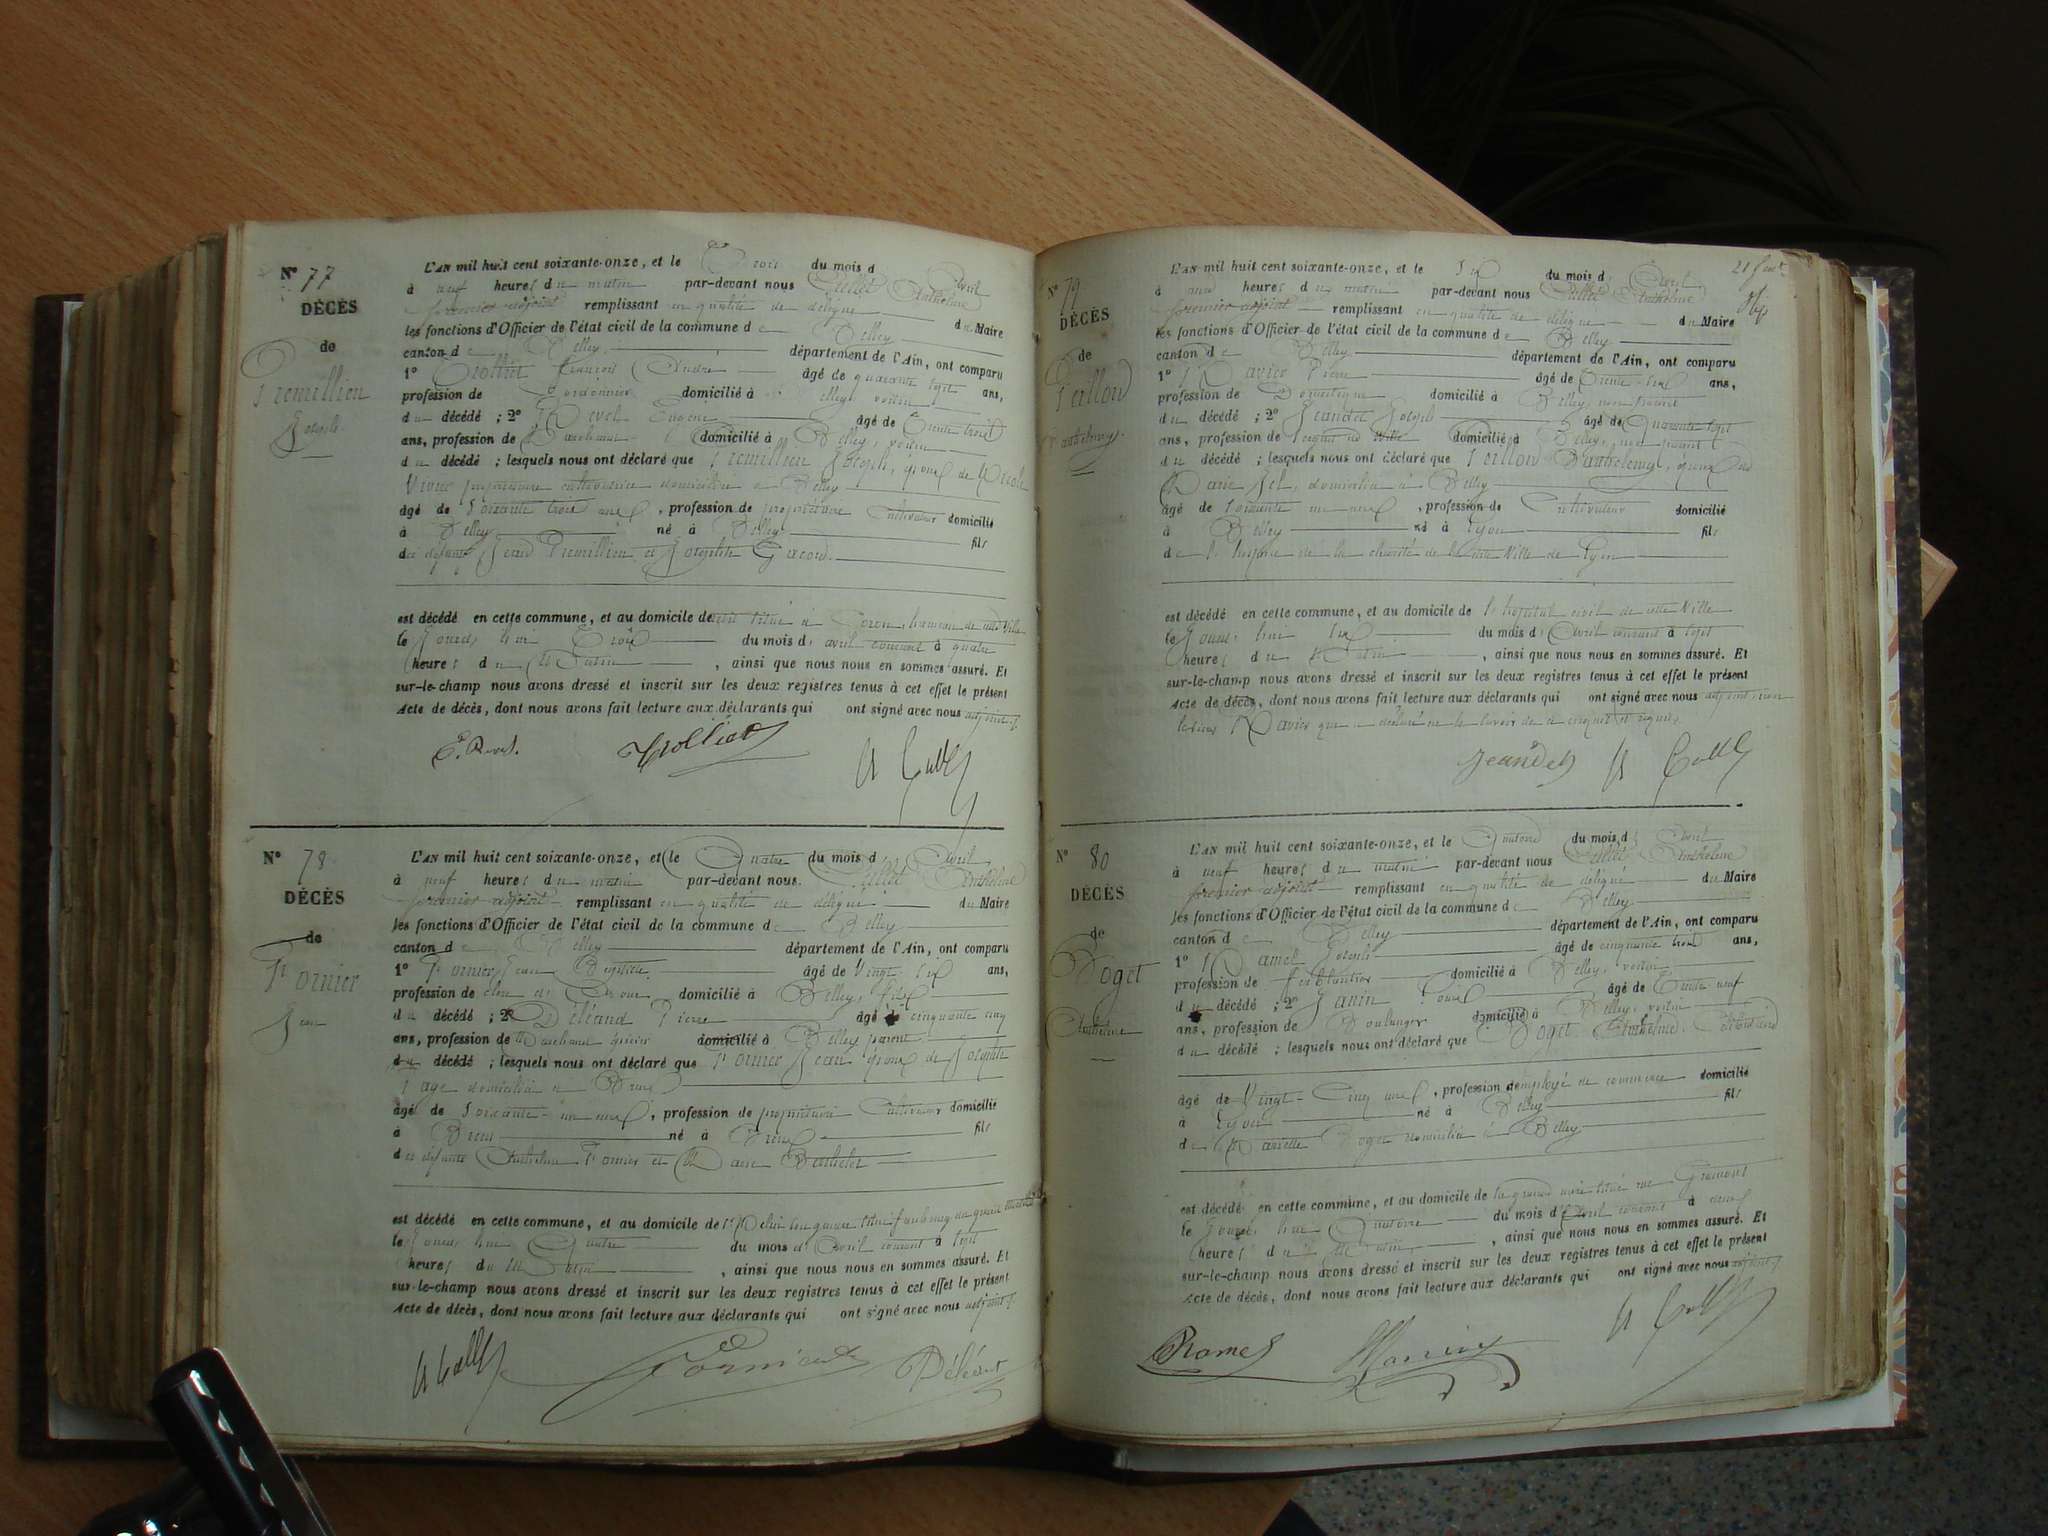 N° 77
DÉCÈS
de
Premillieu
Joseph
L'AN mil huit cent soixante-onze, et le Trois du mois d Avril
à neuf heures du matin par-devant nous Gullet Anthelme
premier adjoint remplissant en qualité de délégué du Maire
les fonctions d'Officier de l'état civil de la commune de Belley
canton de Belley département de l'Ain, ont comparu
1° Trolliet François André âgé de quarante sept ans,
profession de Cordonnier domicilié à Belley, voisin
du décédé ; 2° Revel Eugène âgé de trente trois
ans, profession de domicilié à Belley, voisin
du décédé ; lesquels nous ont déclaré que Premillieu Joseph, époux de
propriétaire cultivatrice domiciliée à Belley
âgé de soixante trois ans, profession de propriétaire Cultivateur domicilié
à Belley né à Belley fils
des défunts Premillieu et Josephte
est décédé en cette commune, et au domicile de situé à Coron, hameau de cette Ville
le Jourd'hui Trois du mois d'avril courant à quatre
heures du Matin, ainsi que nous nous en sommes assuré. Et
sur-le-champ nous avons dressé et inscrit sur les deux registres tenus à cet effet le présent
Acte de décès, dont nous avons fait lecture aux déclarants qui ont signé avec nous adjoint.
E. Revel. Trolliet
N° 78
DÉCÈS
de
Fornier
Jean
L'AN mil huit cent soixante-onze, et le Quatre du mois d Avril
à neuf heures du matin par-devant nous Gullet Anthelme
premier adjoint remplissant en qualité de délégué du Maire
les fonctions d'Officier de l'état civil de la commune de Belley
canton de Belley département de l'Ain, ont comparu
1° Fornier Jean Baptiste âgé de Vingt six ans,
profession de domicilié à Belley, fils
du décédé ; 2° Déléand Pierre âgé de cinquante cinq
ans, profession de Marchand épicier domicilié à Belley parent
du décédé ; lesquels nous ont déclaré que Fornier Jean époux de Josephte
domiciliée à Brens
âgé de soixante-un ans, profession de propriétaire Cultivateur domicilié
à Brens né à Brens fils
des défunts Anthelme Fornier et Marie Berthelet
est décédé en cette commune, et au domicile de
le Jourd'hui Quatre du mois d'Avril courant à sept
heures du Matin, ainsi que nous nous en sommes assuré. Et
sur-le-champ nous avons dressé et inscrit sur les deux registres tenus à cet effet le présent
Acte de décès, dont nous avons fait lecture aux déclarants qui ont signé avec nous adjoint.
Fornier Déléant
21 feuil
N° 79
DÉCÈS
de
Barthelemy
L'AN mil huit cent soixante-onze, et le Six du mois d Avril
à neuf heures du matin par-devant nous Gullet Anthelme
premier adjoint remplissant en qualité de délégué du Maire
les fonctions d'Officier de l'état civil de la commune de Belley
canton de Belley département de l'Ain, ont comparu
1° Ravier Pierre âgé de Trente-six ans,
profession de Domestique domicilié à Belley, non parent
du décédé ; 2° Jeandet Joseph âgé de Quarante sept
ans, profession de Sergent de Ville domicilié à Belley, non parent
du décédé ; lesquels nous ont déclaré que Barthelemy, époux de
Marie domiciliée à Belley
âgé de soixante un ans, profession de Cultivateur domicilié
à Belley né à Lyon fils
de l'hospice de la charité de la Ville de Lyon
est décédé en cette commune, et au domicile de l'hôpital civil de cette Ville
le Jourd'hui Six du mois d'Avril courant à sept
heures du Matin, ainsi que nous nous en sommes assuré. Et
sur-le-champ nous avons dressé et inscrit sur les deux registres tenus à cet effet le présent
Acte de décès, dont nous avons fait lecture aux déclarants qui ont signé avec nous adjoint, non
le sieur Ravier qui a déclaré ne le savoir de ce enquis et requis
Jeandet
N° 80
DÉCÈS
de
Boget
Anthelme
L'AN mil huit cent soixante-onze, et le Quatorze du mois d Avril
à neuf heures du matin par-devant nous Gullet Anthelme
premier adjoint remplissant en qualité de délégué du Maire
les fonctions d'Officier de l'état civil de la commune de Belley
canton de Belley département de l'Ain, ont comparu
1° Ramel Joseph âgé de cinquante trois ans,
profession de ferblantier domicilié à Belley, voisin
du décédé ; 2° Janin Louis âgé de Trente neuf
ans, profession de Boulanger domicilié à Belley, voisin
du décédé ; lesquels nous ont déclaré que Boget Anthelme, Célibataire
âgé de Vingt-Cinq ans, profession d'employé de commerce domicilié
à Lyon né à Belley fils
de Mariette Boget domiciliée à Belley
est décédé en cette commune, et au domicile de sa grand mère située rue Gramont
le Jourd'hui Quatorze du mois d'Avril courant à deux
heures du Matin, ainsi que nous nous en sommes assuré. Et
sur-le-champ nous avons dressé et inscrit sur les deux registres tenus à cet effet le présent
Acte de décès, dont nous avons fait lecture aux déclarants qui ont signé avec nous adjoint.
Ramel